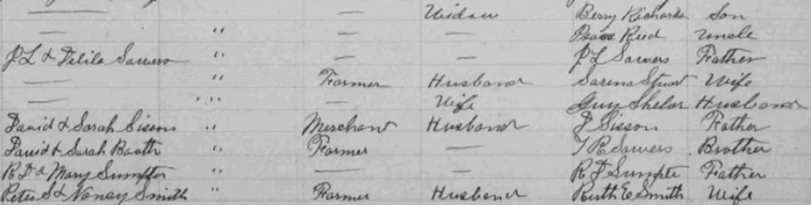 — Widow Berry Richards Son
— " — — Isaac Reed Uncle
J L & Delila Sowers " — — J L Sowers Father
— " Farmer Husband Sarena Stuart Wife
— " — Wife Guy Shelor Husband
David & Sarah Sisson " Merchant Husband J Sisson Father
David & Sarah " Farmer — T R Sowers Brother
R D & Mary Sumpter " — — R D Sumpter Father
Peter S & Nancy Smith " Farmer Husband Ruth E Smith Wife